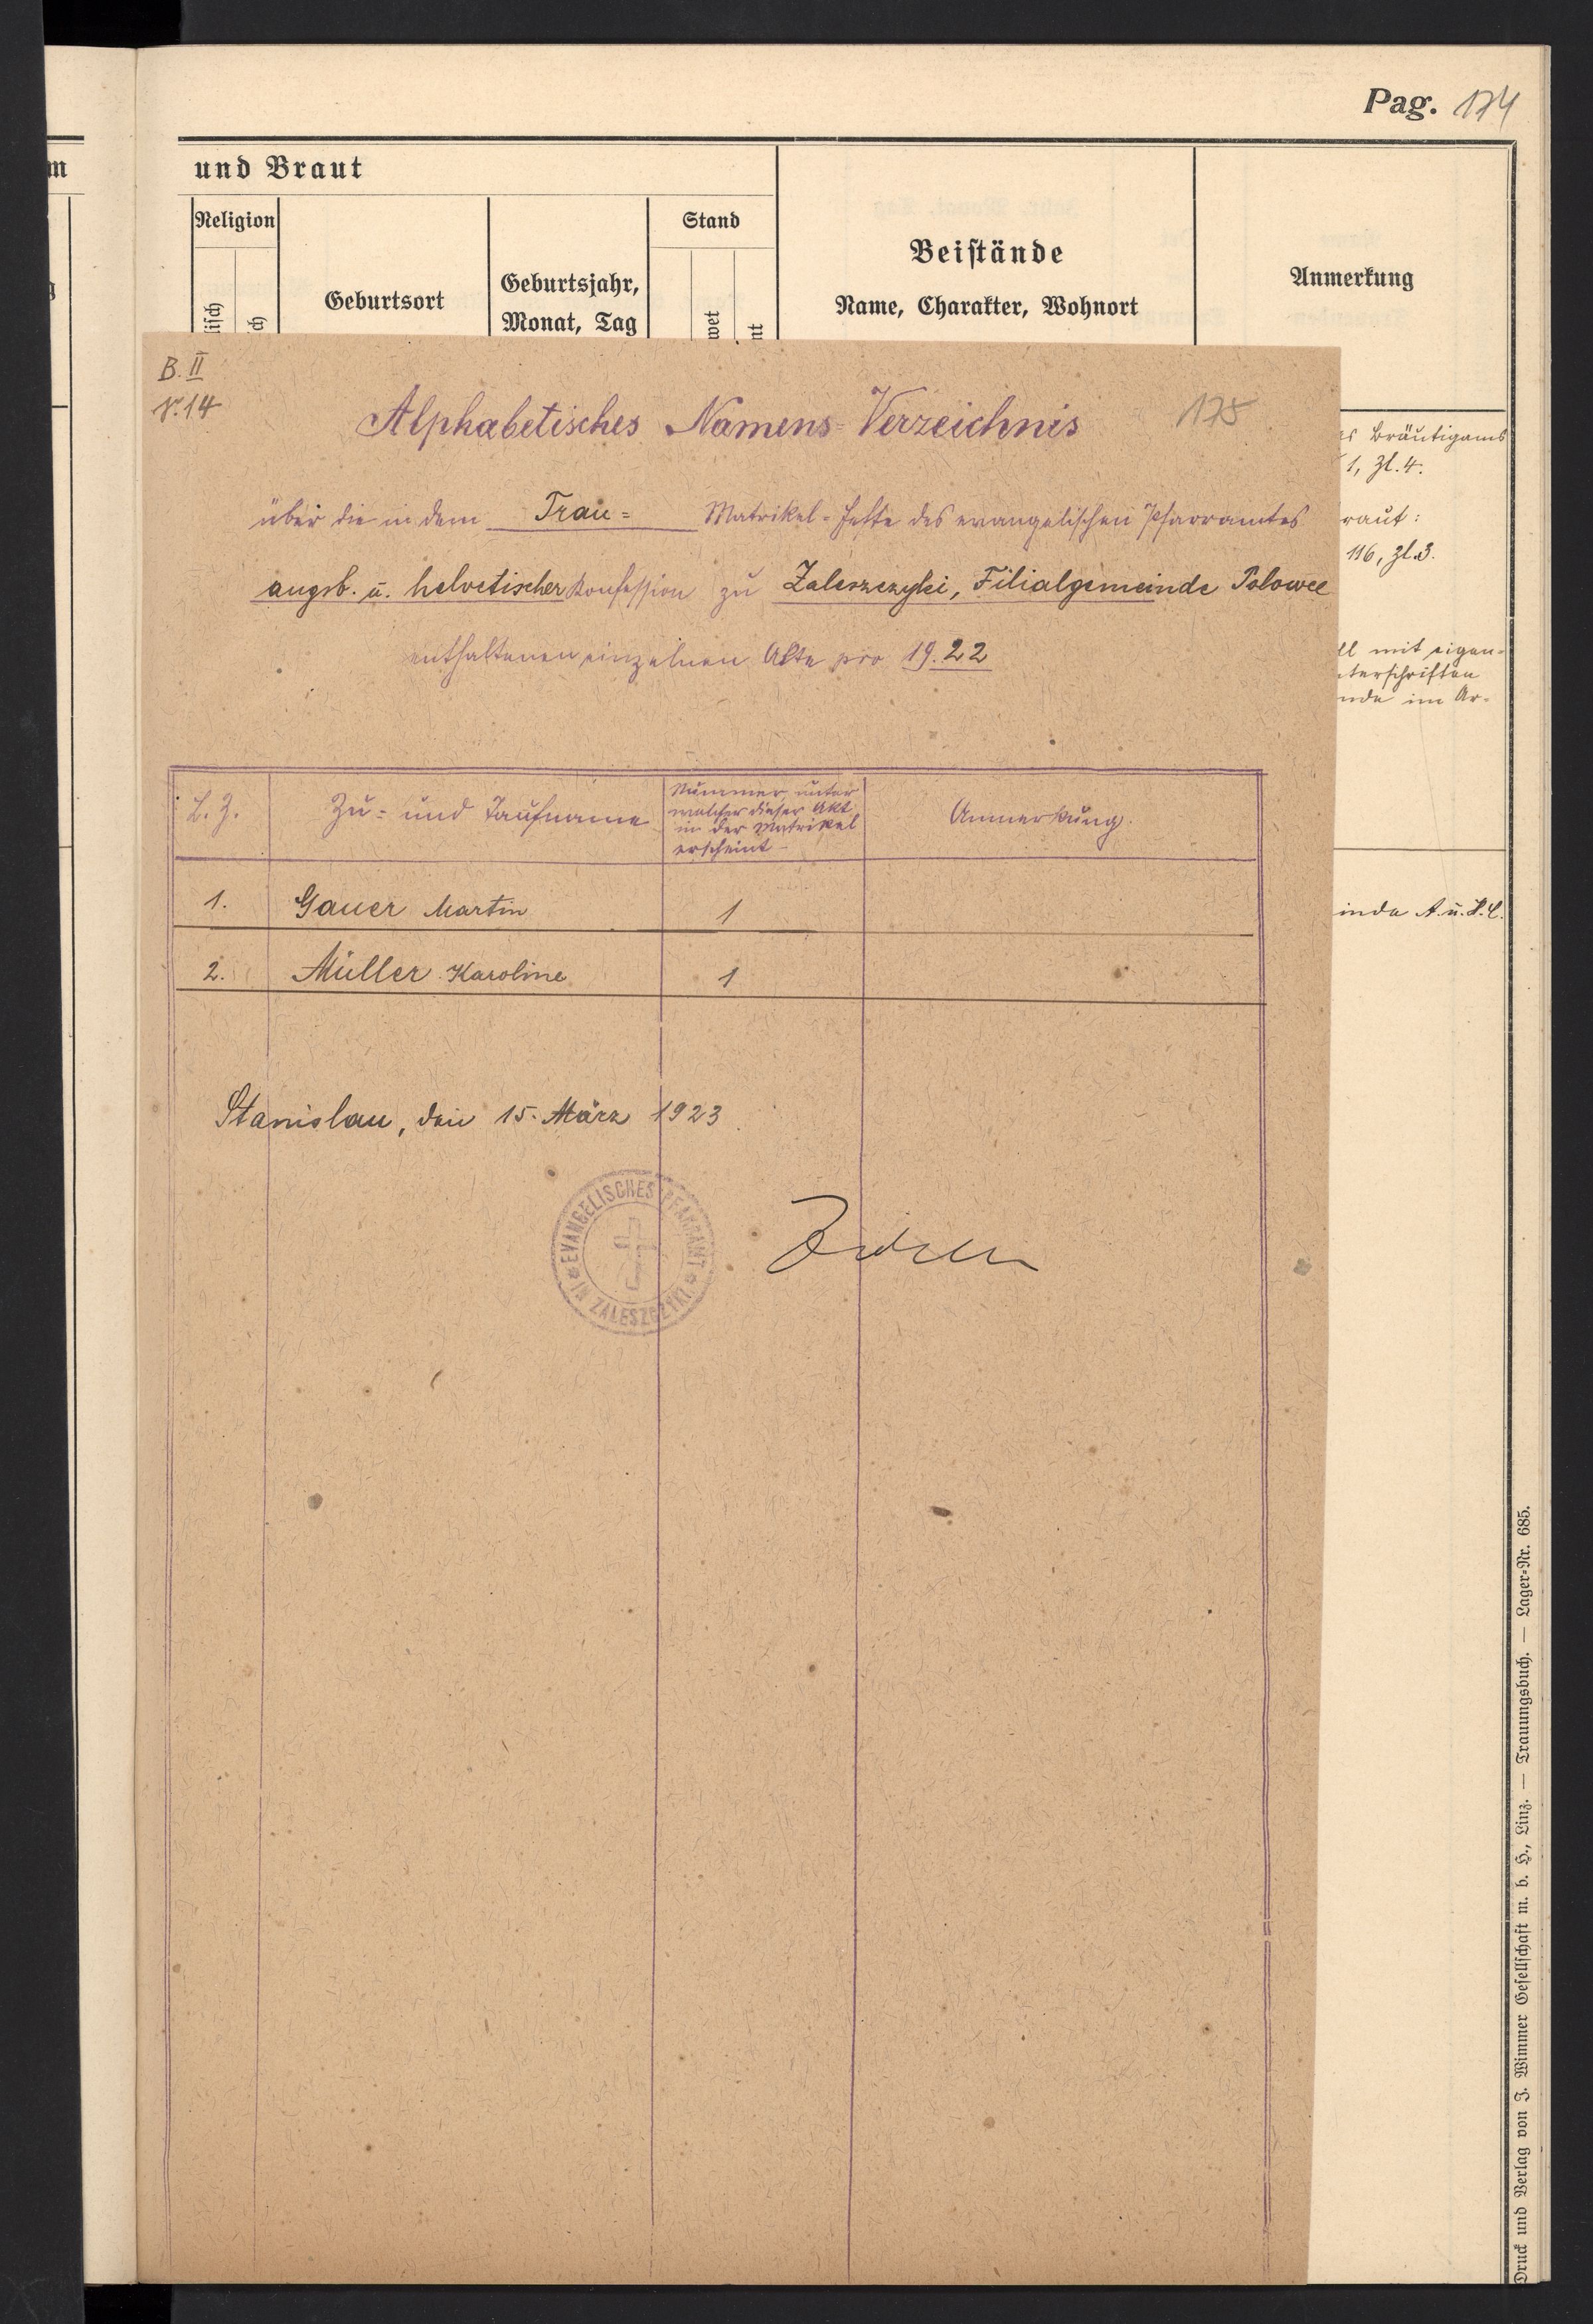 Pag. 174
und Braut
Religion
Stand
Geburtsort
Geburtsjahr,
Monat, Tag
Beistände
Name, Charakter, Wohnort
Anmerkung
B. II
N. 14
Alphabetisches Namens-Verzeichnis
175
über die in dem Trau= Matrikel=Hefte des evangelischen Pfarramtes
augsb. u. helvetischer Konfession zu Zaleszczyki, Filialgemeinde Polowce
enthaltenen einzelnen Akte pro 19.22
L. Z.
Zu= und Taufname
Nummer, unter
welcher dieser Akt
in der Matrikel
erscheint
Anmerkung.
1. Gauer Martin 1
2. Müller Karoline 1
Stanislau, den 15. März 1923
EVANGELISCHES PFARRAMT
* IN ZALESZCZYKI *
Bräutigams
1, Zl. 4.
raut:
116, Zl. 3.
ll mit eigen-
terschriften
nde im Ar-
inde A. u. H. C.
Druck und Verlag von J. Wimmer Gesellschaft m. b. H., Linz. — Trauungsbuch. — Lager-Nr. 685.